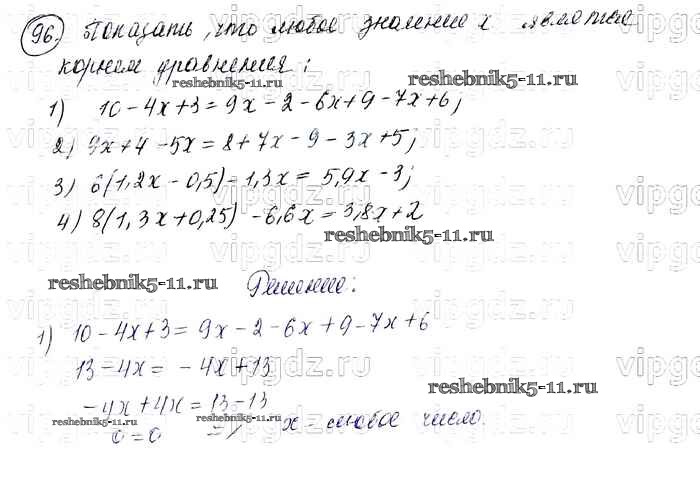 96. Показать, что любое значение x является
корнем уравнения:
reshebnik5-11.ru
reshebnik5-11.ru
1) 10 - 4x + 3 = 9x - 2 - 6x + 9 - 7x + 6;
2) 9x + 4 - 5x = 8 + 7x - 9 - 3x + 5;
3) 6(1,2x - 0,5) - 1,3x = 5,9x - 3;
4) 8(1,3x + 0,25) - 6,6x = 3,8x + 2
reshebnik5-11.ru
reshebnik5-11.ru
Решение:
1) 10 - 4x + 3 = 9x - 2 - 6x + 9 - 7x + 6
13 - 4x = - 4x + 13
reshebnik5-11.ru
- 4x + 4x = 13 - 13
reshebnik5-11.ru
0 = 0 => x - любое число.
vipgdz.ru